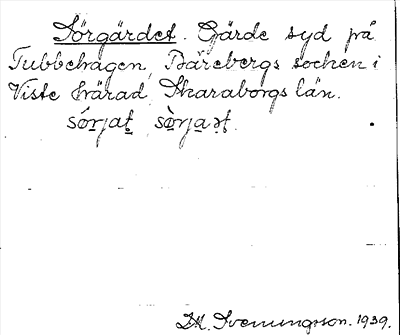 Sörgärdet. Gärde syd på
Tubbehagen, Bärebergs socken i
Viste härad, Skaraborgs län.
Svenningson. 1939.